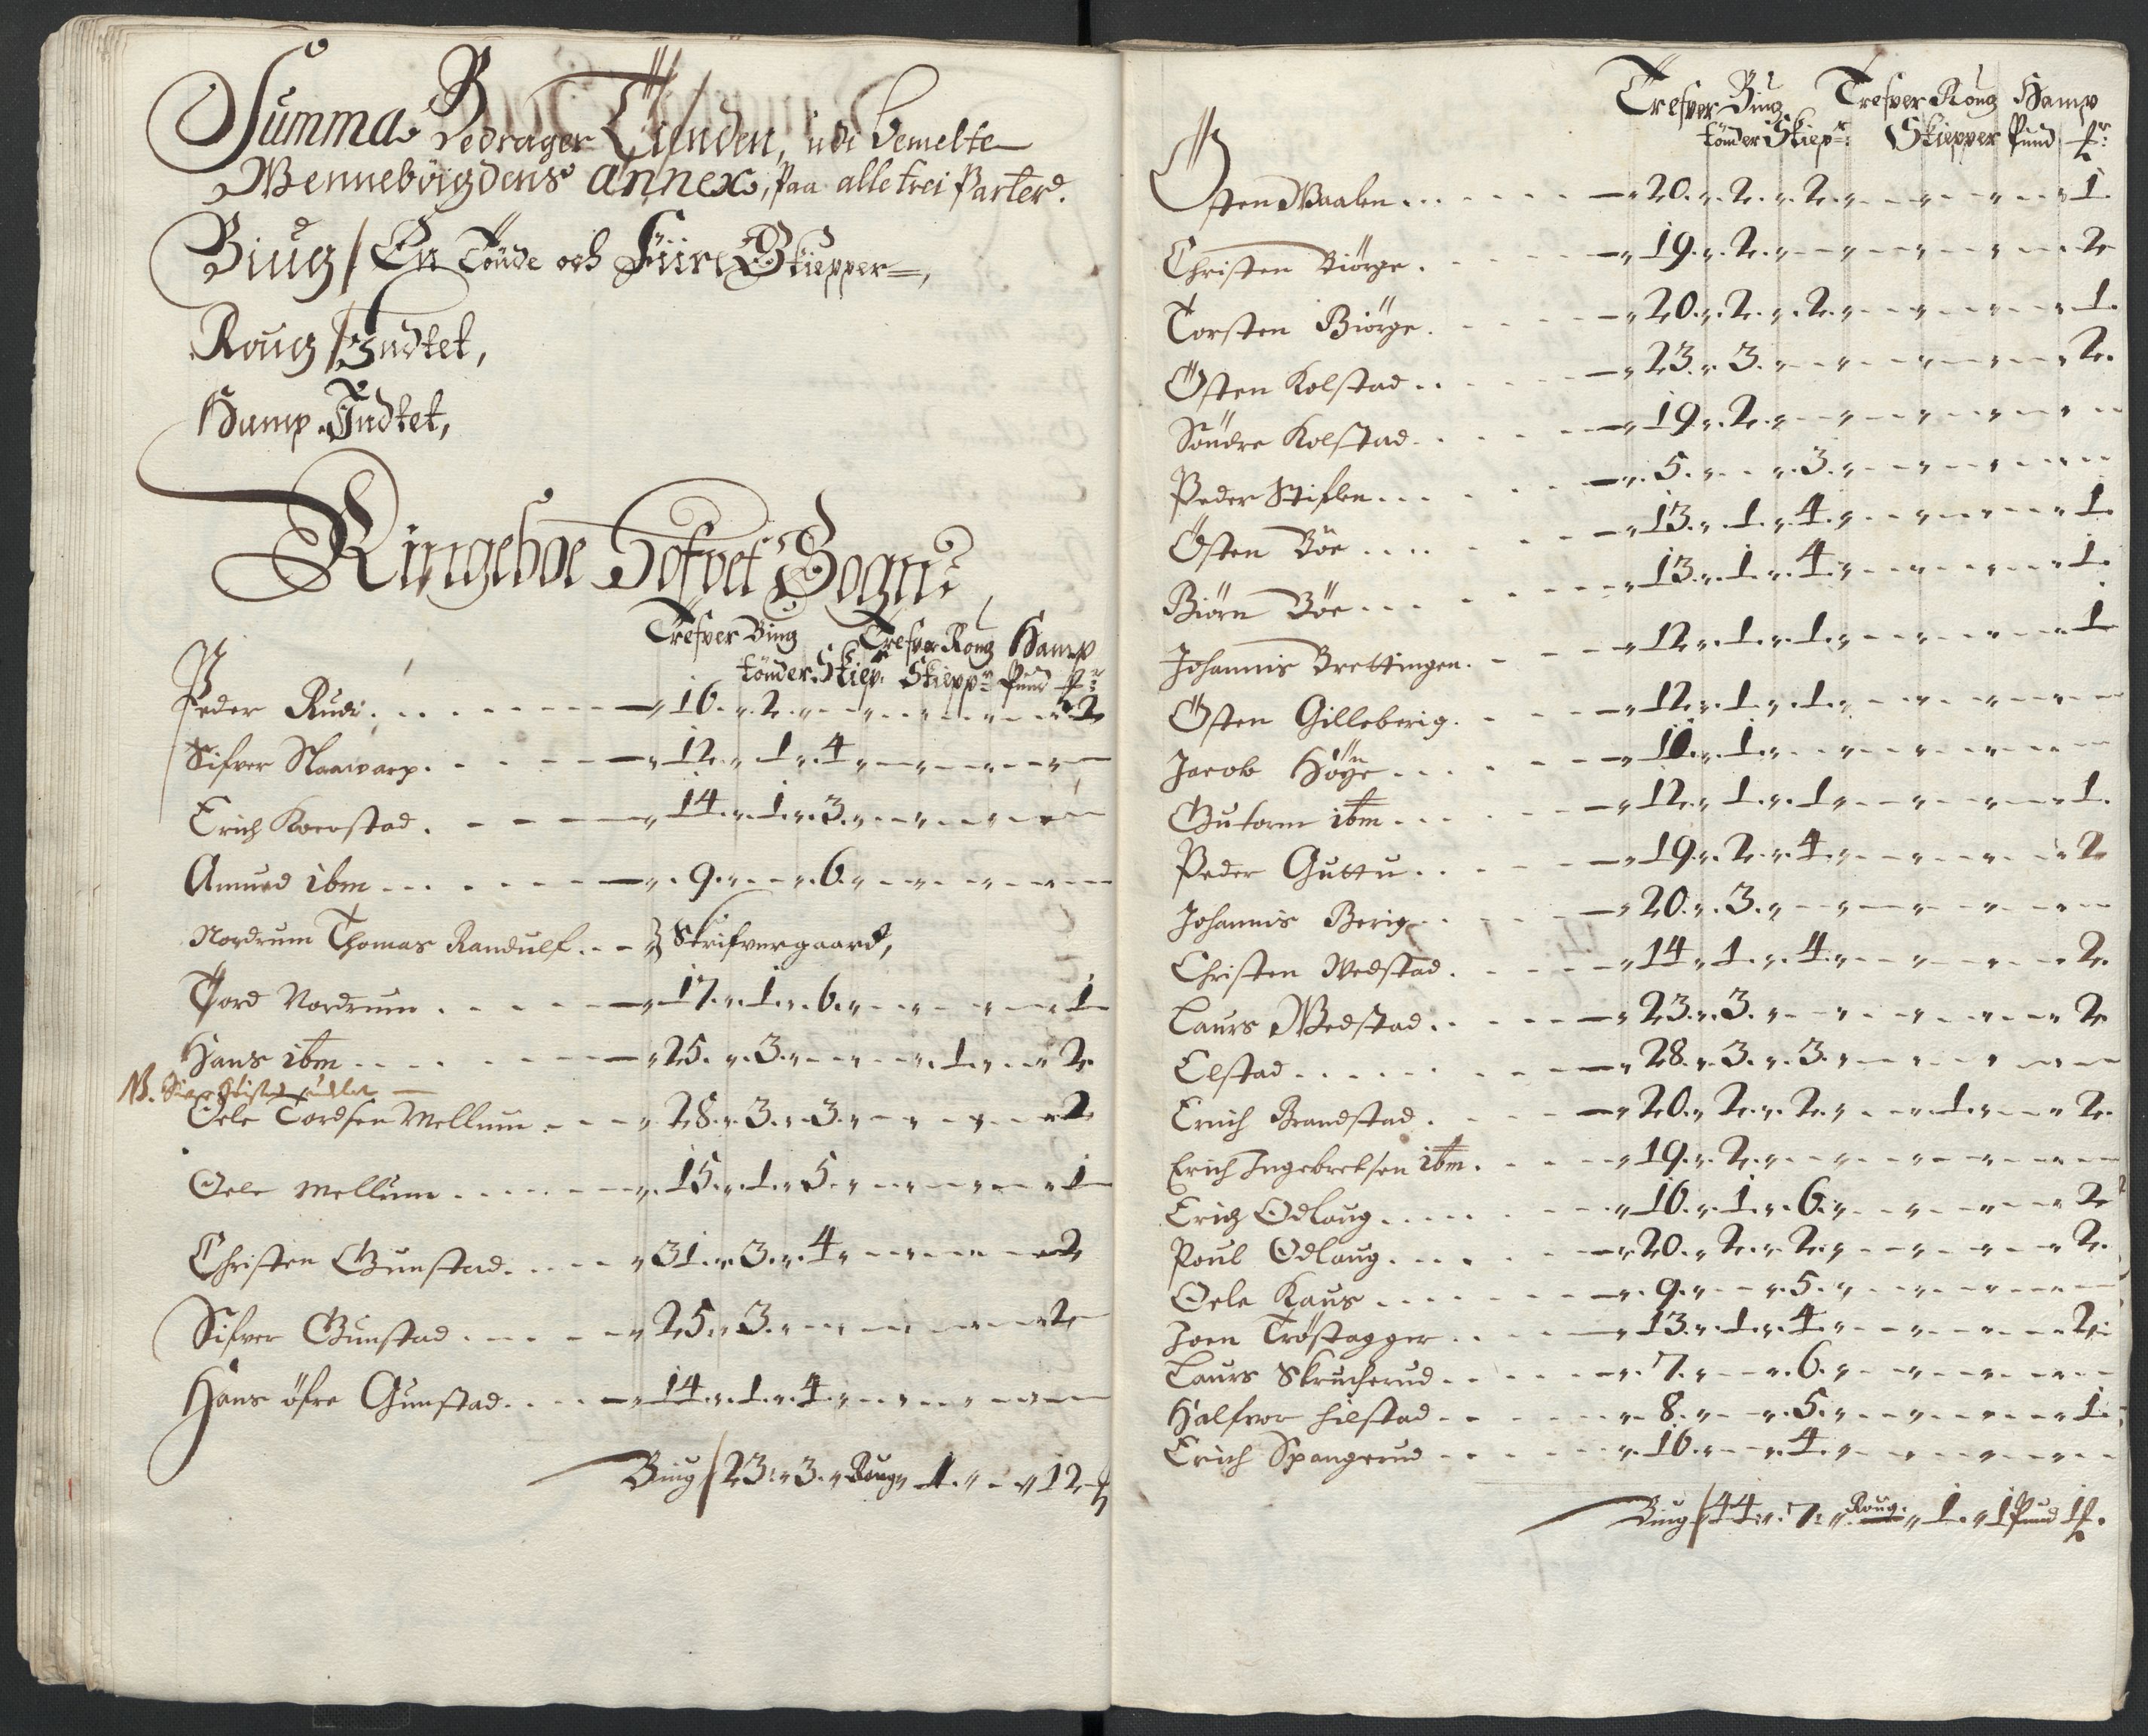 Summa Bedrager Tienden, udi bemelte
Wennebÿigdens annex, paa alle trei Parter.
Biug / En Tönde och Fiire Skiepper,
Roug / Indtet,
Hamp Indtet,
Ringeboe Hofvet Sogn
Trefver Biug Trefver Roug Hamp
tönder. Skiep. Skiepp Pund
Peder Rudi 16. 2. 2
Sifver Naawarp 12. 1. 4
Erich Koerstad 14. 1. 3.
Amund ibm 9. 6.
Nordrum Thomas Randulf Skrifvergaard,
Tord Nordrum 17. 1. 6. 1
Hans ibm 25. 3. 1. 2.
NB.
Oele Tordsen Mellum 28. 3. 3. 2
Oele Mellum 15. 1. 5. 1
Christen Gunstad 31. 3. 4 2
Sifver Gunstad 25. 3. 2
Hans öfre Gunstad 14. 1. 4.
Biug / 23. 3. Roug 1. 12
Trefver Biug Trefver Roug Hamp
tönder Skiep Skiepper Pund
Östen Waalen 20. 2. 2. 1.
Christen Biörge 19. 2. 2
Torsten Biörge 20. 2. 2. 1.
Östen Kolstad 23. 3. 2.
Söndre Kolstad 19. 2.
Peder Stiflen 5. 3.
Östen Böe 13. 1. 4. 1.
Biörn Böe 13. 1. 4. 1.
Johannis Brettingen 12. 1. 1. 1
Östen Gilleberig 12. 1. 1.
Jacob Höÿe 10. 1.
Gutorm ibm 12. 1. 1 1.
Peder Guttu 19. 2. 4. 2
Johannis Berig 20. 3.
Christen Wedstad 14 1. 4. 2.
Laurs Wedstad 23. 3. 2
Elstad 28. 3. 3.
Erich Brandstad 20. 2. 2. 1. 2.
Erich Ingebretsen ibm 19. 2.
Erich Odlaug 16. 1. 6. 2
Poul Odlaug 20. 2. 2. 2.
Oele Kaus 9. 5.
Joen Tröstagger 13. 1. 4. 2.
Laurs Skrucherud 7. 6.
Halfvor Filstad 8. 5. 1.
Erich Spangerud 16. 4.
Biug / 44. 7. Roug. 1. 1 Pund 1